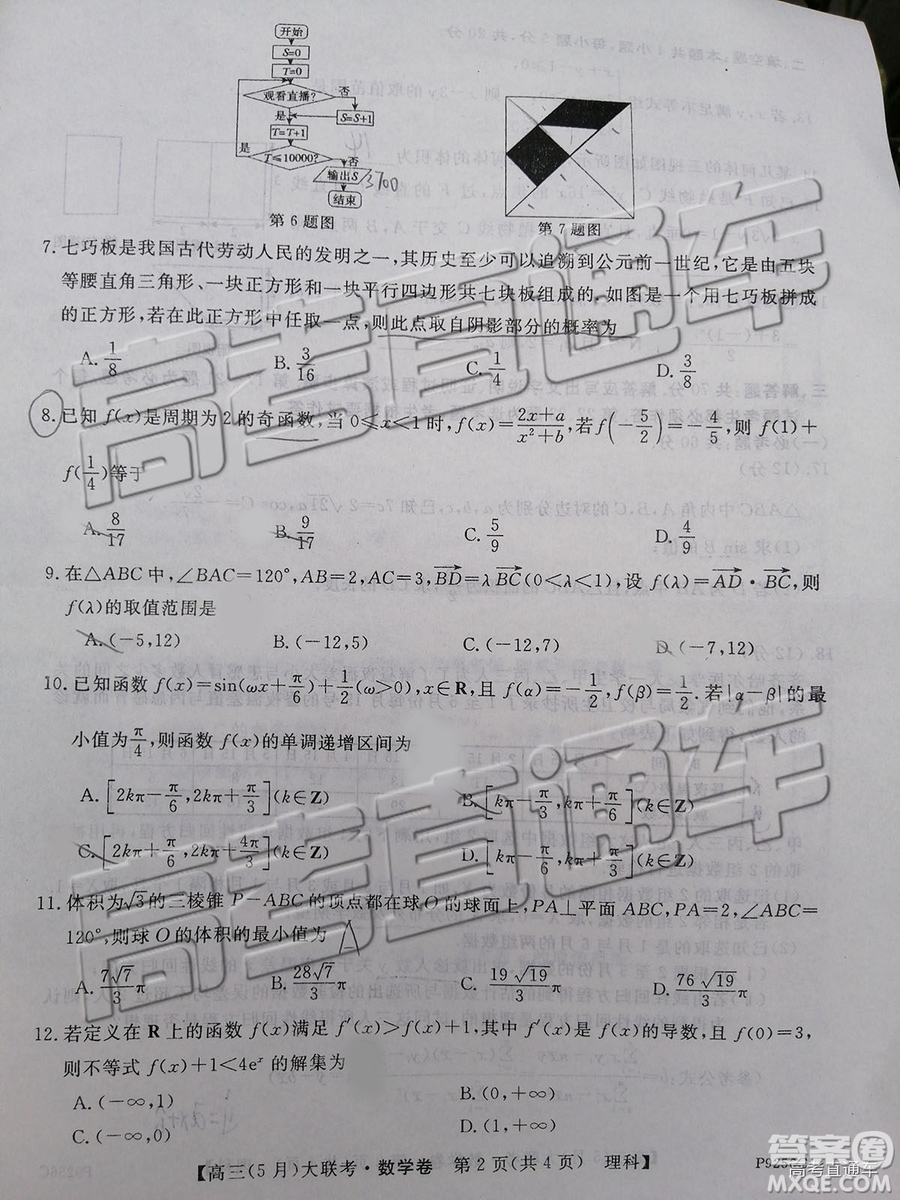 开始
S=0
T=0
观看直播?
否
是
S=S+1
T=T+1
是
T≤10000?
否
输出S
3700
结束
第6题图
第7题图
7.七巧板是我国古代劳动人民的发明之一,其历史至少可以追溯到公元前一世纪,它是由五块
等腰直角三角形、一块正方形和一块平行四边形共七块板组成的.如图是一个用七巧板拼成
的正方形,若在此正方形中任取一点,则此点取自阴影部分的概率为
A. 1/8 B. 3/16 C. 1/4 D. 3/8
8.已知 f(x)是周期为2的奇函数,当 0≤x≤1时,f(x)=(2x+a)/(x²+b),若f(-5/2)=-4/5,则 f(1)+
f(1/4)等于
A. 8/17 B. 9/17 C. 5/9 D. 4/9
9.在△ABC中,∠BAC=120°,AB=2,AC=3,BD=λBC(0<λ<1),设 f(λ)=AD·BC,则
f(λ)的取值范围是
A.(-5,12) B.(-12,5) C.(-12,7) D.(-7,12)
10.已知函数 f(x)=sin(ωx+π/6)+1/2(ω>0),x∈R,且 f(α)=-1/2,f(β)=1/2.若|α-β|的最
小值为π/4,则函数 f(x)的单调递增区间为
A.[2kπ-π/6,2kπ+π/3](k∈Z) B.[kπ-π/3,kπ+π/6](k∈Z)
C.[2kπ+π/6,2kπ+4π/3](k∈Z) D.[kπ-π/6,kπ+π/3](k∈Z)
11.体积为√3的三棱锥 P-ABC 的顶点都在球O的球面上,PA⊥平面 ABC,PA=2,∠ABC=
120°,则球 O 的体积的最小值为
A. 7√7/3 π B. 28√7/3 π C. 19√19/3 π D. 76√19/3 π
12.若定义在 R 上的函数 f(x)满足 f′(x)>f(x)+1,其中 f′(x)是 f(x)的导数,且 f(0)=3,
则不等式 f(x)+1<4eˣ 的解集为
A.(-∞,1) B.(0,+∞)
C.(-∞,0) D.(1,+∞)
【高三(5月)大联考·数学卷 第2页(共4页) 理科】
高考直通车
高考直通车
答案圈
高考直通车
MXQE.COM